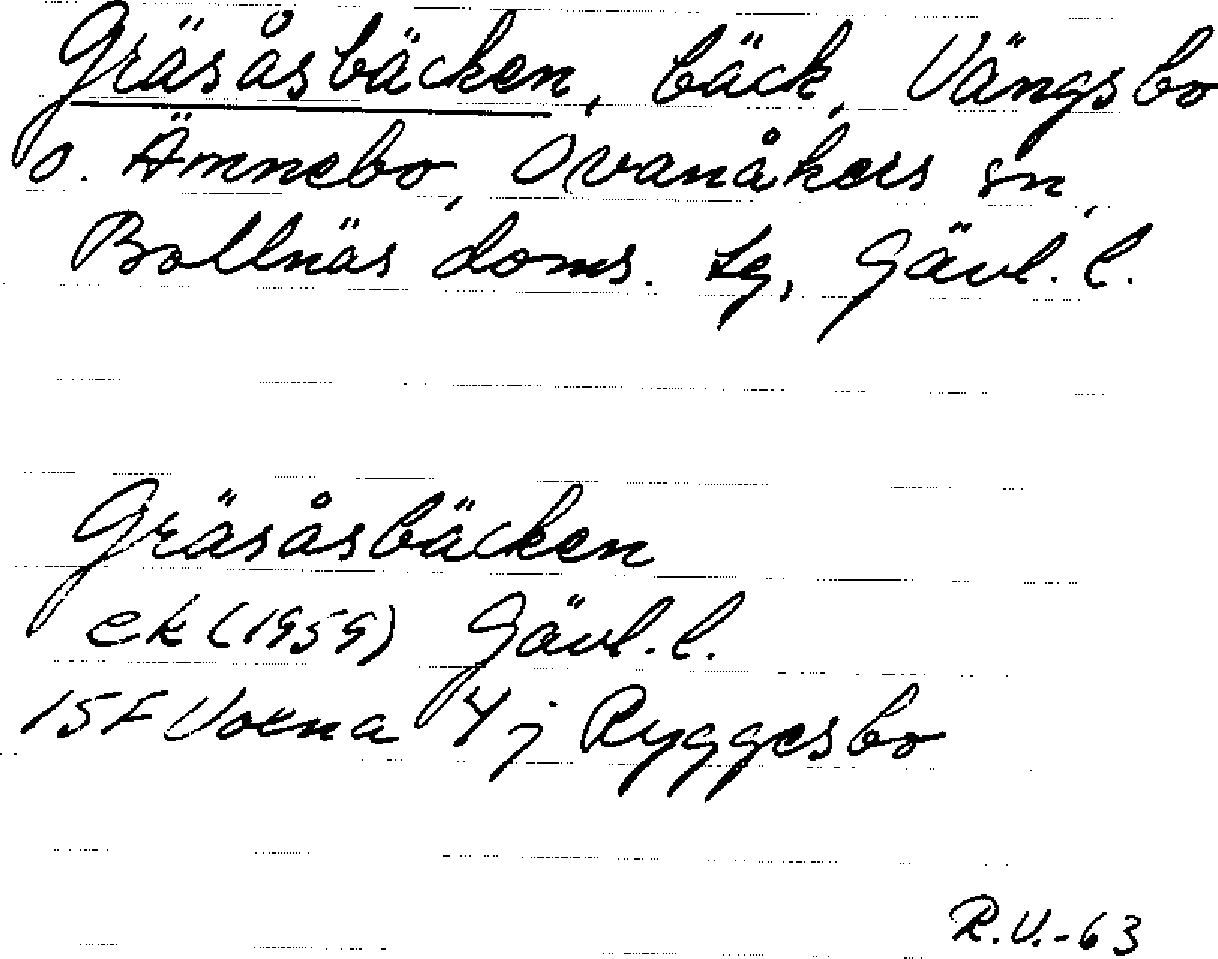 Gräsåsbäcken, bäck, Vängsbo
o. Ämnebo, Ovanåkers sn,
Bollnäs doms. lg, Gävl. l.
Gräsåsbäcken
ek (1959) Gävl. l.
15F Voxna 4j Ryggesbo
R.V.-63